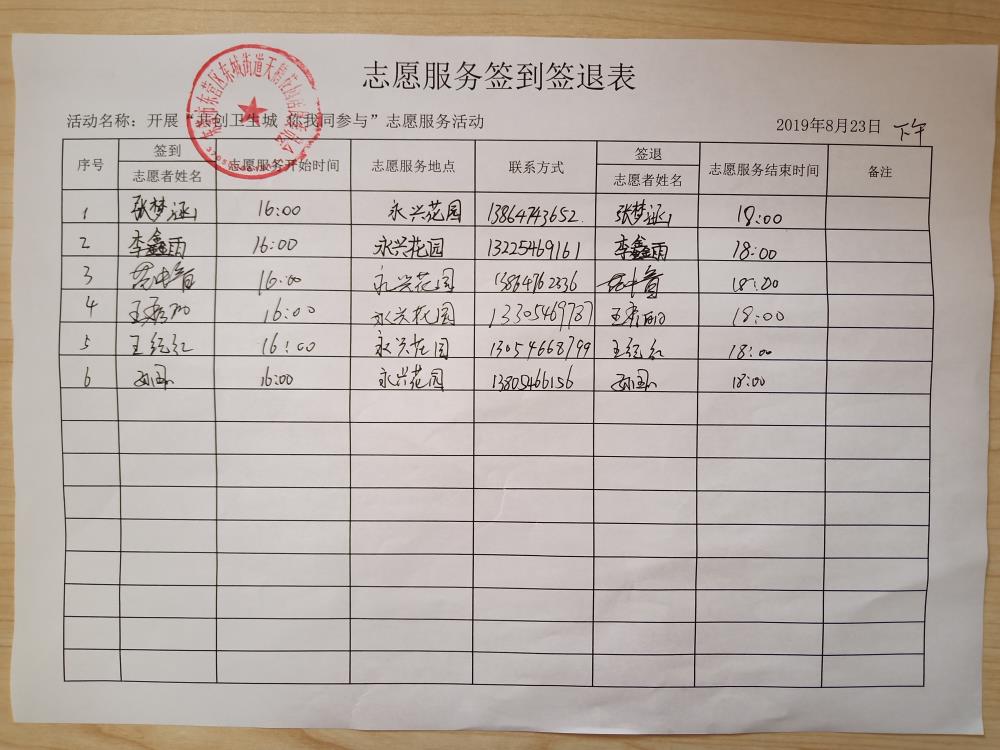 志愿服务签到签退表
活动名称：开展“共创卫生城 你我同参与”志愿服务活动
2019年8月23日 下午
序号 签到 志愿者姓名 志愿服务开始时间 志愿服务地点 联系方式 签退 志愿者姓名 志愿服务结束时间 备注
1 张梦涵 16:00 永兴花园 13864743652 张梦涵 18:00
2 李鑫雨 16:00 永兴花园 13225469161 李鑫雨 18:00
3 16:00 永兴花园 13864762336 18:00
4 16:00 永兴花园 13305469787 18:00
5 王纪红 16:00 永兴花园 13054668799 王纪红 18:00
6 16:00 永兴花园 13805466156 18:00